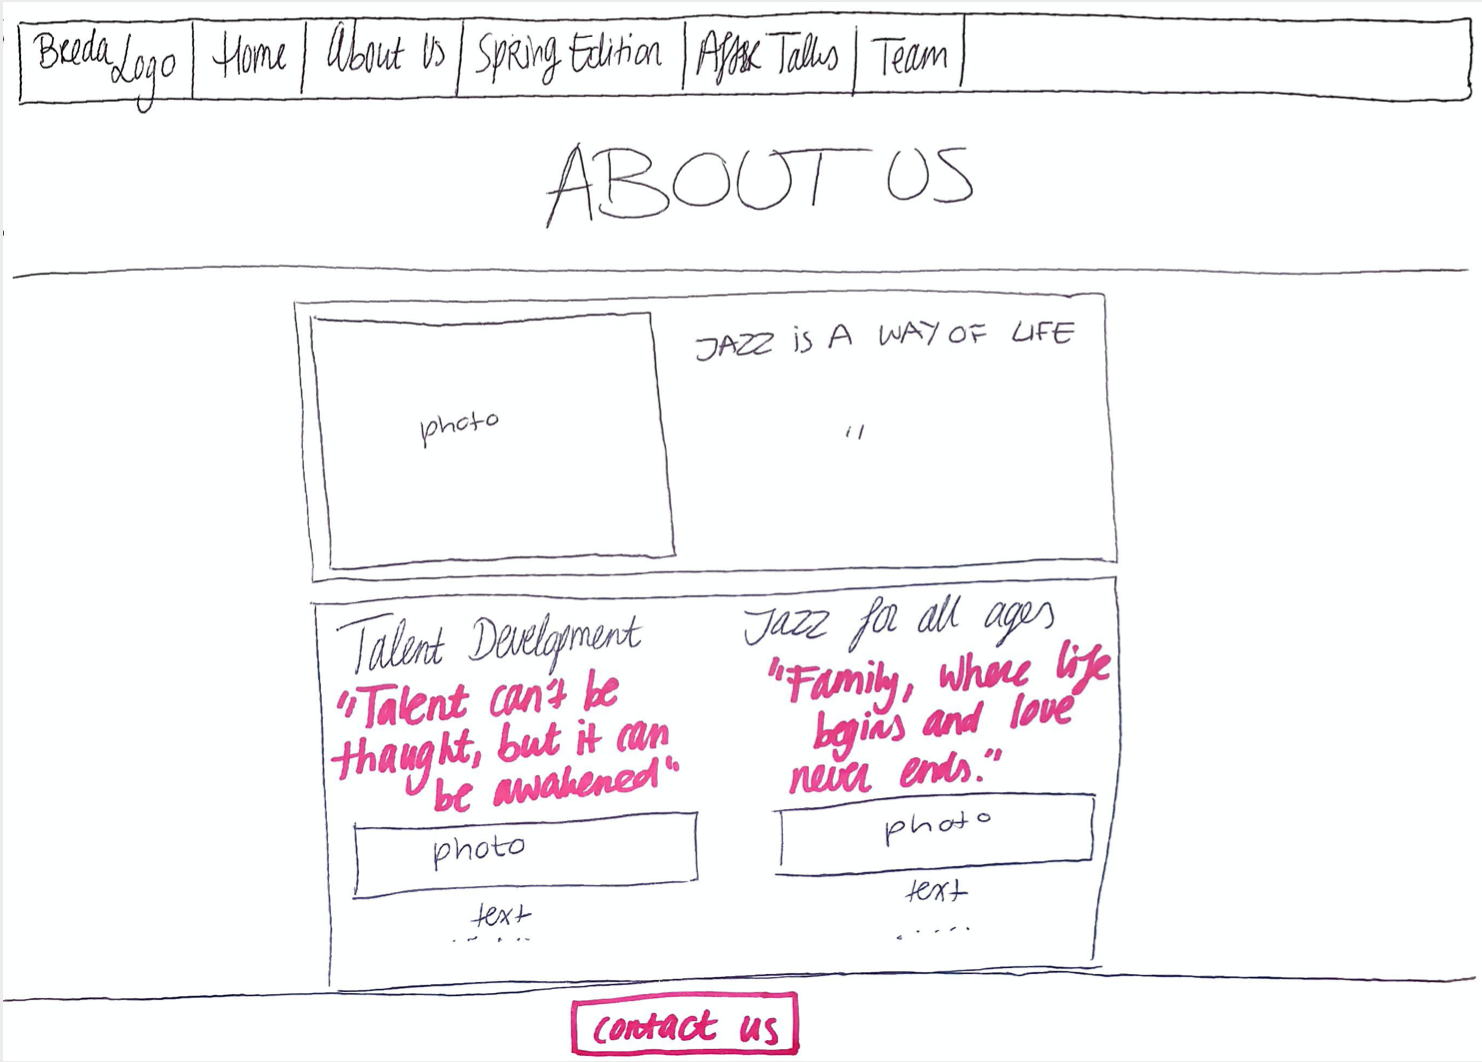 Breda Logo Home About Us Spring Edition After Talks Team
ABOUT US
photo
JAZZ is A WAY OF LIFE
"
Talent Development
"Talent can't be
thaught, but it can
be awakened"
photo
text
.....
Jazz for all ages
"Family, where life
begins and love
never ends."
photo
text
.....
contact us